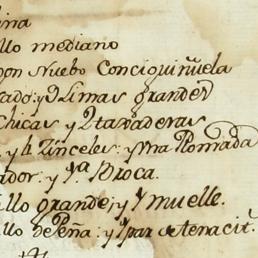 lina
llo mediano
on Nuebo Conciguiñuela
rado: y 2 Limas grandes
Chicas y 2 taraderas
y 4 Zinceles: y Una Romada
ador: y 1ª Broca.
llo grande; y 1 muelle.
llo de Peña: y 1 par de tenacit.